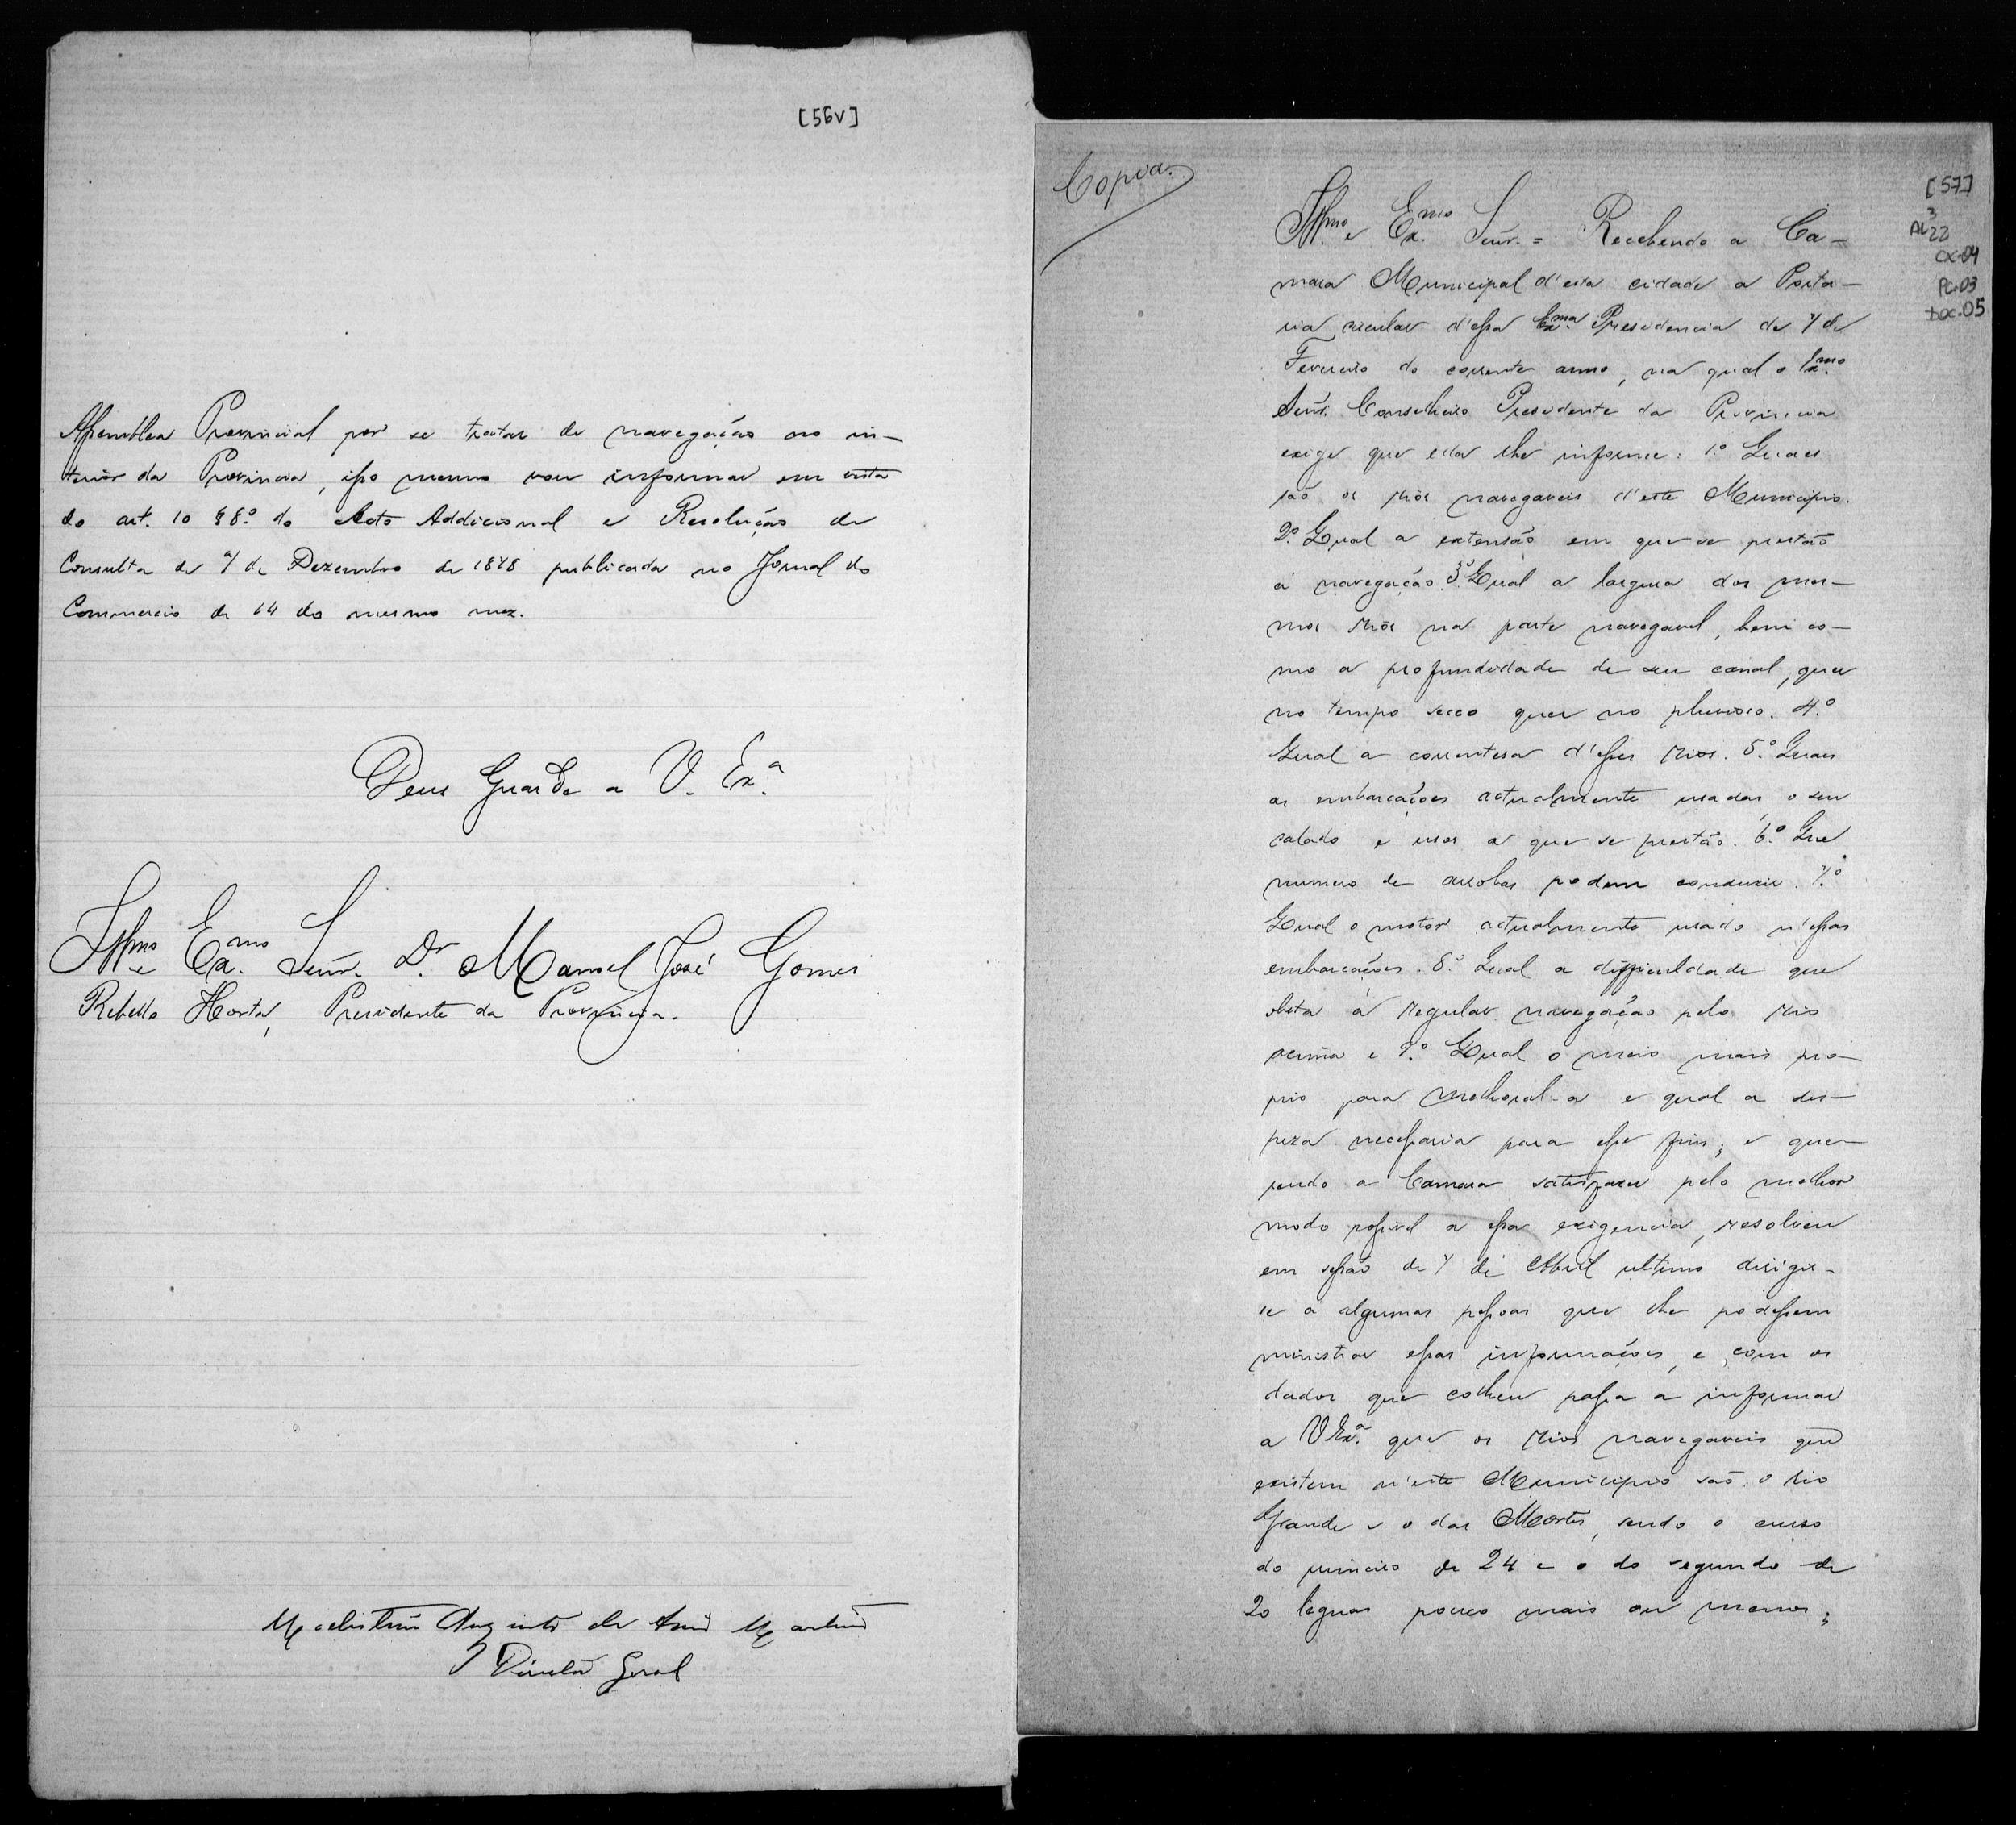 [56v]
Assemblea Provincial por se tratar de navegação no in-
terior da Provincia, isso mesmo vou informar em vista
do art. 10 § 8.º do Acto Addicional e Resolução de
Consulta de 7 de Dezembro de 1878 publicada no Jornal do
Commercio de 14 do mesmo mez.
Deus Guarde a V. Ex.ª
Illmo e Ex.mo Senr. Dr. Manoel José Gomes
Rebello Horta, Presidente da Provincia.
Augusto de
Director Geral
Copia.
[57]
3
AL 22
cx-04
Pc.03
Doc.05
Illmo e Ex.mo Senr. = Recebendo a Ca-
mara Municipal d'esta cidade a Porta-
ria circular d'essa Ex.ma Presidencia de 7 de
Fevereiro do corrente anno, na qual o Ex.mo
Senr. Conselheiro Presidente da Provincia
exige que ella lhe informe: 1.º Quaes
são os rios navegaveis d'este Municipio.
2.º Qual a extensão em que se prestão
á navegação. 3.º Qual a largura dos mes-
mos rios na parte navegavel, bem co-
mo a profundidade de seu canal, quer
no tempo secco quer no pluvioso. 4.º
Qual a correntesa d'esses rios. 5.º Quaes
as embarcações actualmente usadas, o seu
calado e usos a que se prestão. 6.º Que
numero de arrobas podem conduzir. 7.º
Qual o motor actualmente usado n'essas
embarcações. 8.º Qual a difficuldade que
obsta á regular navegação pelo rio
acima e 9.º Qual o meio mais pro-
prio para melhoral-a e qual a des-
peza necessaria para esse fim; e quer-
endo a Camara satisfazer pelo melhor
modo possivel a essa exigencia, resolveu
em sessão de 7 de Abril ultimo dirigir-
se a algumas pessoas que lhe podessem
ministrar essas informações, e com os
dados que colheu passa a informar
a V Ex.ª que os rios navegaveis que
existem n'este Municipio são: o rio
Grande e o das Mortes, sendo o curso
do primeiro de 24 e o do segundo de
20 leguas pouco mais ou menos;